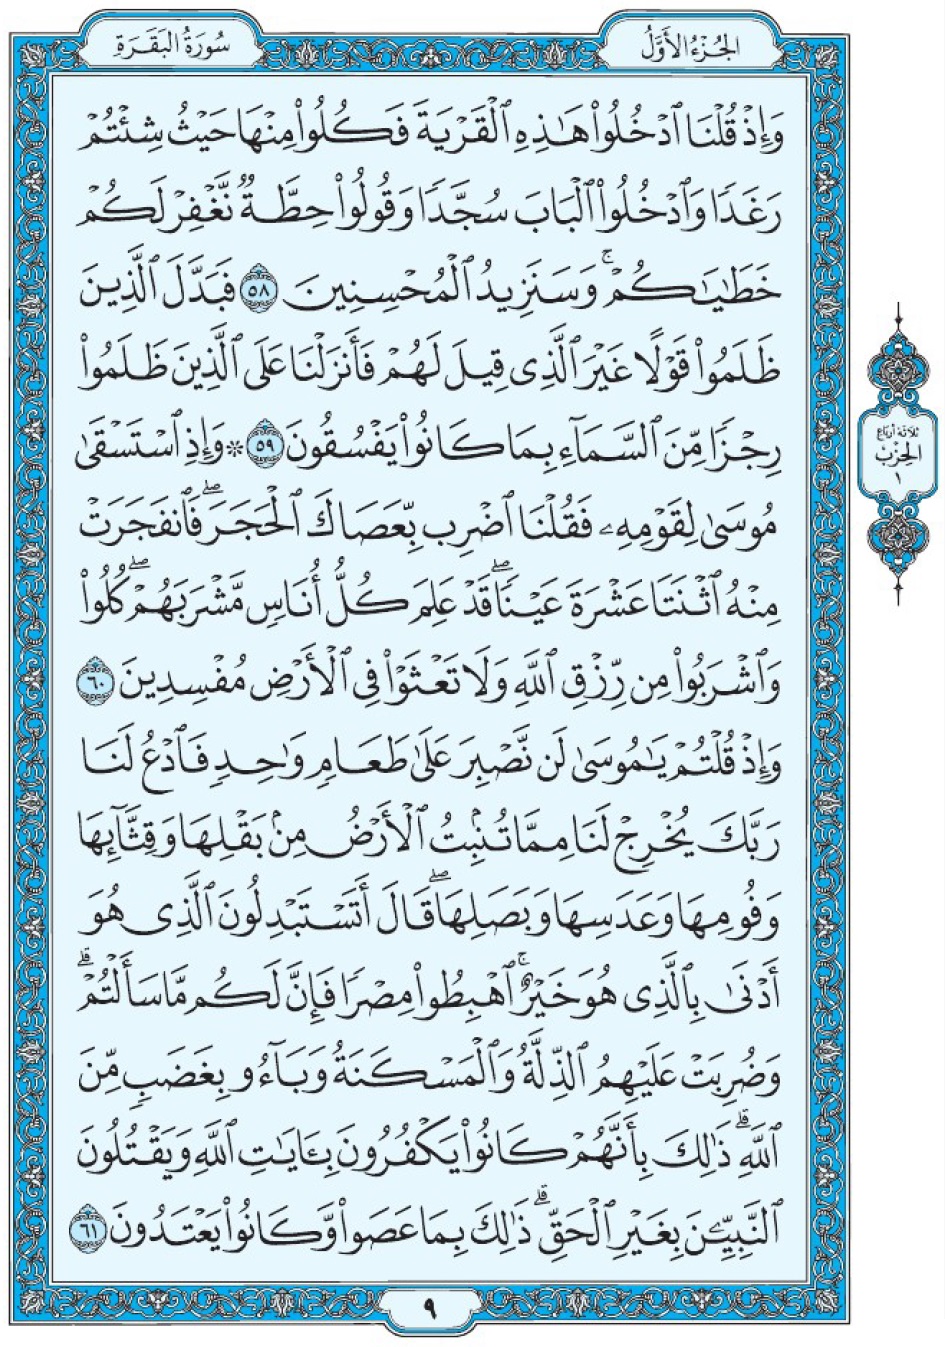 الجُزْءُ الأَوَّلُ
سُورَةُ البَقَرَةِ
وَإِذْ قُلْنَا ٱدْخُلُوا۟ هَٰذِهِ ٱلْقَرْيَةَ فَكُلُوا۟ مِنْهَا حَيْثُ شِئْتُمْ
رَغَدًا وَٱدْخُلُوا۟ ٱلْبَابَ سُجَّدًا وَقُولُوا۟ حِطَّةٌ نَّغْفِرْ لَكُمْ
خَطَٰيَٰكُمْ ۚ وَسَنَزِيدُ ٱلْمُحْسِنِينَ ٥٨ فَبَدَّلَ ٱلَّذِينَ
ظَلَمُوا۟ قَوْلًا غَيْرَ ٱلَّذِى قِيلَ لَهُمْ فَأَنزَلْنَا عَلَى ٱلَّذِينَ ظَلَمُوا۟
رِجْزًا مِّنَ ٱلسَّمَآءِ بِمَا كَانُوا۟ يَفْسُقُونَ ٥٩ * وَإِذِ ٱسْتَسْقَىٰ
مُوسَىٰ لِقَوْمِهِۦ فَقُلْنَا ٱضْرِب بِّعَصَاكَ ٱلْحَجَرَ ۖ فَٱنفَجَرَتْ
مِنْهُ ٱثْنَتَا عَشْرَةَ عَيْنًا ۖ قَدْ عَلِمَ كُلُّ أُنَاسٍ مَّشْرَبَهُمْ ۖ كُلُوا۟
وَٱشْرَبُوا۟ مِن رِّزْقِ ٱللَّهِ وَلَا تَعْثَوْا۟ فِى ٱلْأَرْضِ مُفْسِدِينَ ٦٠
وَإِذْ قُلْتُمْ يَٰمُوسَىٰ لَن نَّصْبِرَ عَلَىٰ طَعَامٍ وَٰحِدٍ فَٱدْعُ لَنَا
رَبَّكَ يُخْرِجْ لَنَا مِمَّا تُنۢبِتُ ٱلْأَرْضُ مِنۢ بَقْلِهَا وَقِثَّآئِهَا
وَفُومِهَا وَعَدَسِهَا وَبَصَلِهَا ۖ قَالَ أَتَسْتَبْدِلُونَ ٱلَّذِى هُوَ
أَدْنَىٰ بِٱلَّذِى هُوَ خَيْرٌ ۚ ٱهْبِطُوا۟ مِصْرًا فَإِنَّ لَكُم مَّا سَأَلْتُمْ ۗ
وَضُرِبَتْ عَلَيْهِمُ ٱلذِّلَّةُ وَٱلْمَسْكَنَةُ وَبَآءُو بِغَضَبٍ مِّنَ
ٱللَّهِ ۗ ذَٰلِكَ بِأَنَّهُمْ كَانُوا۟ يَكْفُرُونَ بِـَٔايَٰتِ ٱللَّهِ وَيَقْتُلُونَ
ٱلنَّبِيِّـۧنَ بِغَيْرِ ٱلْحَقِّ ۗ ذَٰلِكَ بِمَا عَصَوا۟ وَّكَانُوا۟ يَعْتَدُونَ ٦١
ثلاثة أرباع
الحِزْب
١
٩